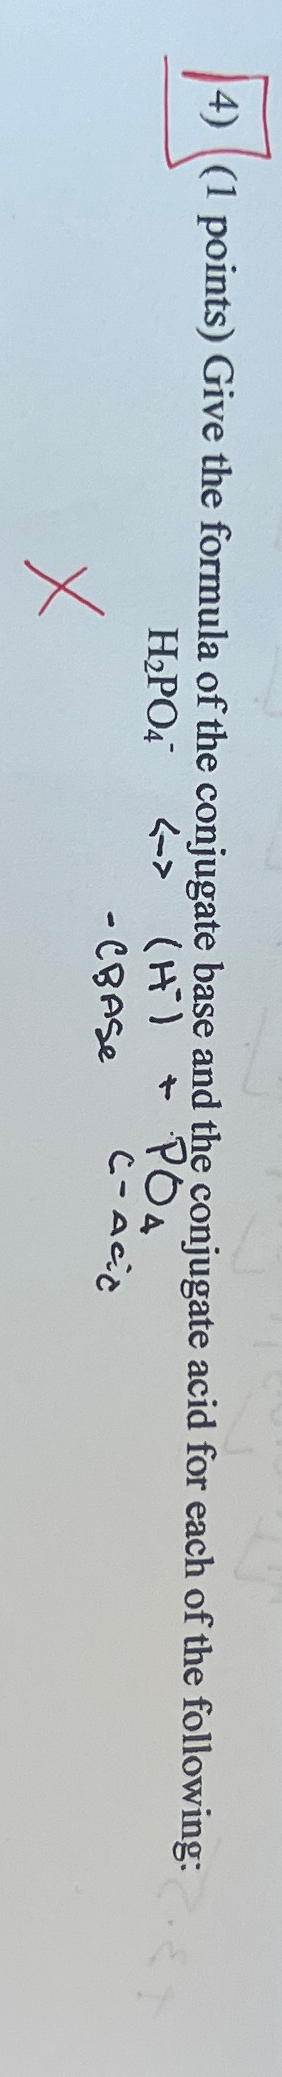 4) (1 points) Give the formula of the conjugate base and the conjugate acid for each of the following:
H₂PO₄⁻ <-> (H⁻) + PO₄
-CBASe C-Acid